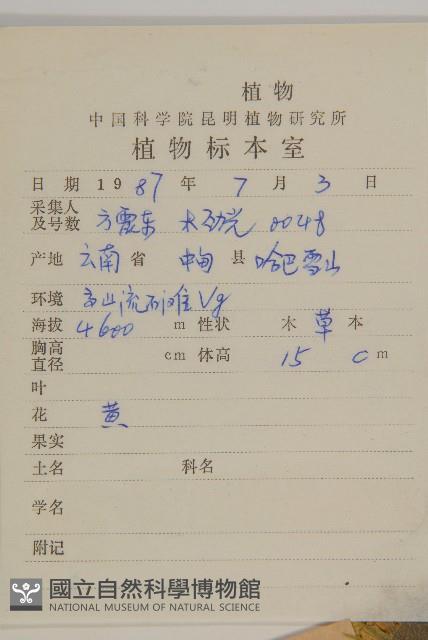 植物
中国科学院昆明植物研究所
植物标本室
日期 1987 年 7 月 3 日
采集人
及号数 方震东 0048
产地 云南 省 中甸 县 哈巴雪山
环境 高山流石滩 Vg
海拔 4600 m 性状 木 草 本
胸高
直径 cm 体高 15 cm
叶
花 黄
果实
土名 科名
学名
附记
國立自然科學博物館
NATIONAL MUSEUM OF NATURAL SCIENCE